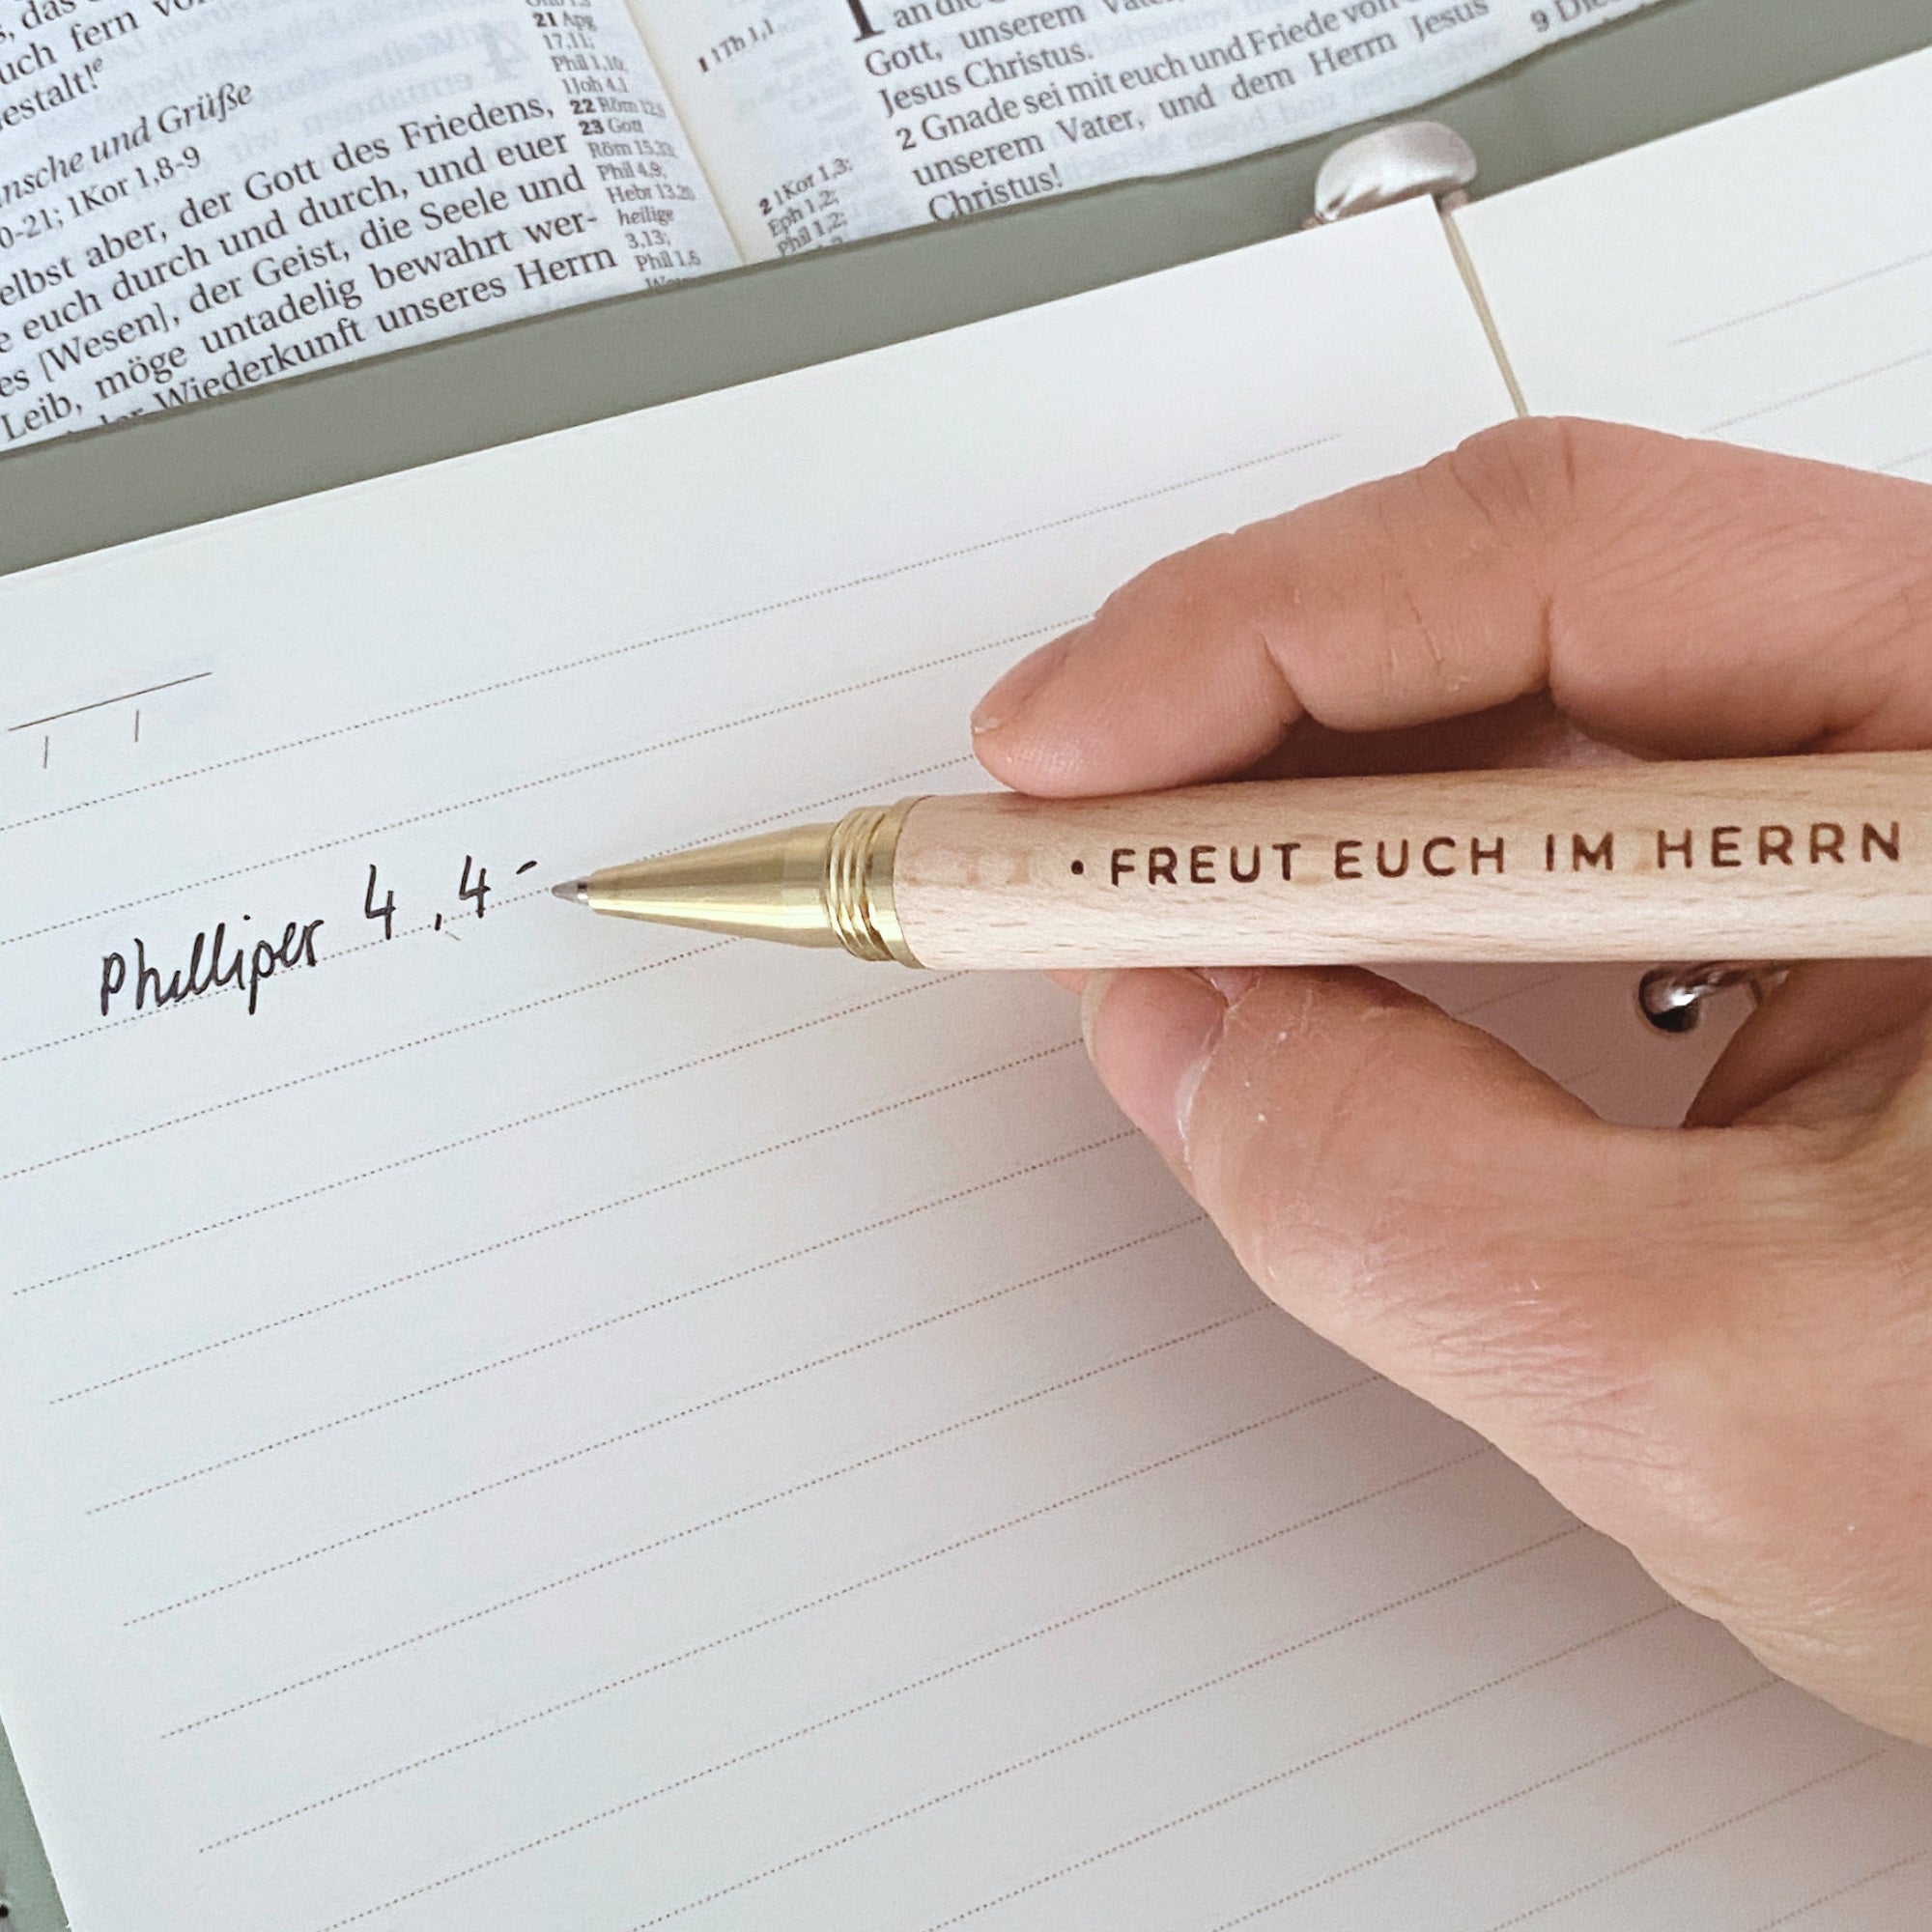 uch fern
estalt!e
nsche und Grüße
0-21; 1Kor 1,8-9
elbst aber, der Gott des Friedens,
e euch durch und durch, und euer
es [Wesen], der Geist, die Seele und
Leib, möge untadelig bewahrt wer-
Wiederkunft unseres Herrn
21 Apg
17,11;
Phil 1,10;
1Joh 4,1
22 Röm 12,9
23 Gott
Röm 15,33;
Phil 4,9;
Hebr 13,20
heilige
3,13;
Phil 1,6
1 1Th 1,1
2 1Kor 1,3;
Eph 1,2;
Phil 1,2;
an die
Gott, unserem Vater,
Jesus Christus.
2 Gnade sei mit euch und Friede von
unserem Vater, und dem Herrn Jesus
Christus!
Philliper 4,4-
• FREUT EUCH IM HERRN